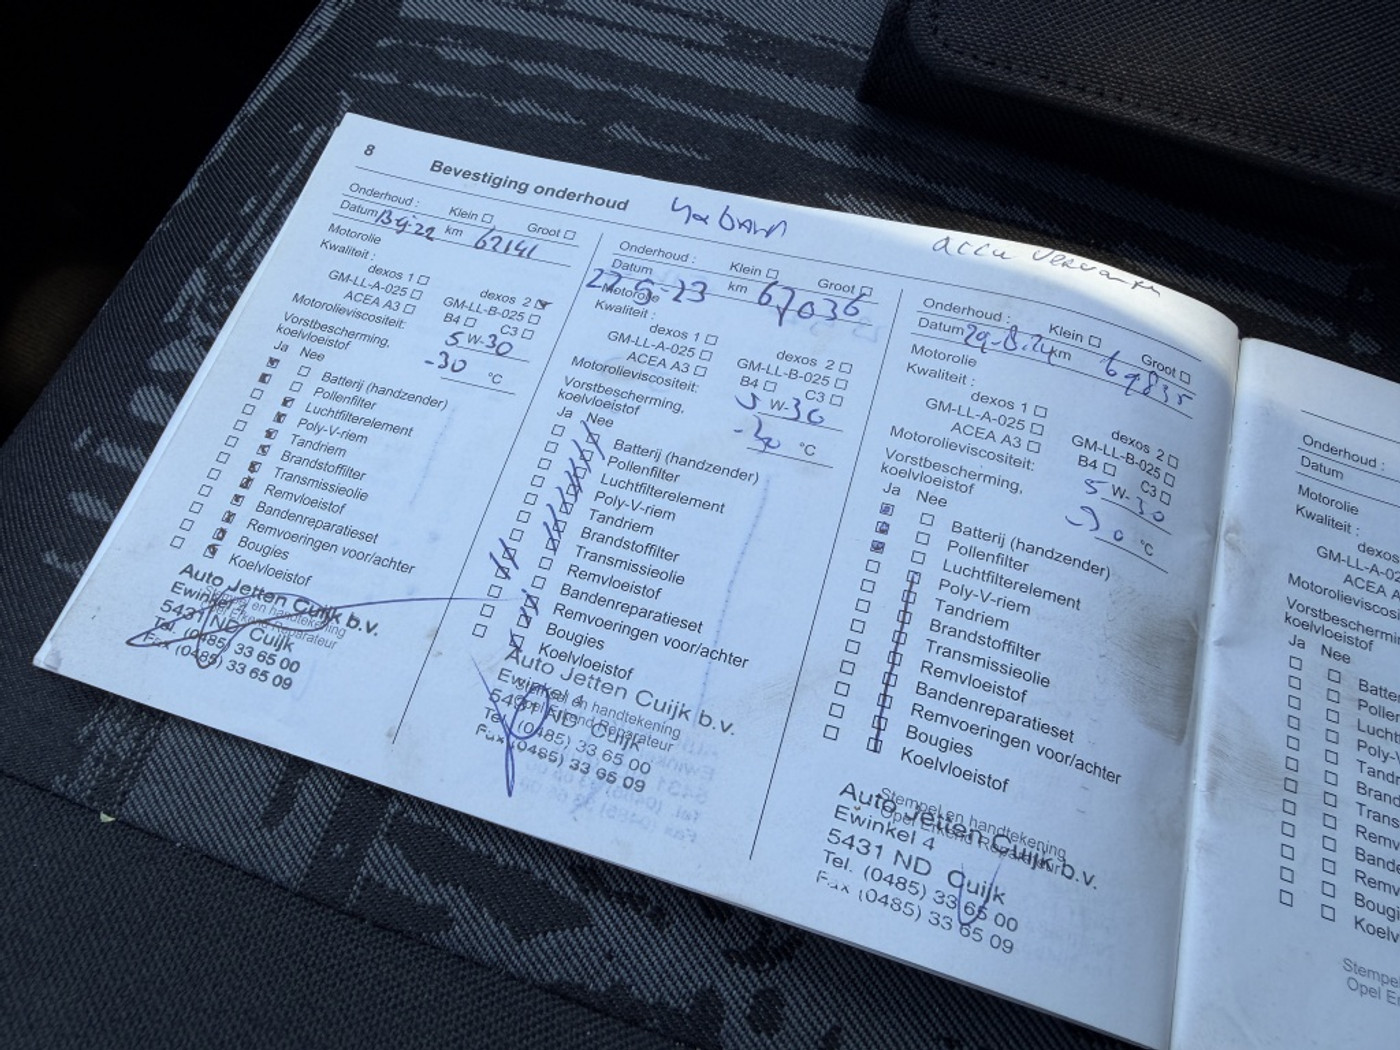 8 Bevestiging onderhoud
4x band
accu vervangen
Onderhoud : Klein Groot
Datum km 62141
Motorolie
Kwaliteit :
dexos 1 dexos 2
GM-LL-A-025 GM-LL-B-025
ACEA A3 B4 C3
Motorolieviscositeit: 5 W-30
Vorstbescherming,
koelvloeistof -30 °C
Ja Nee
Batterij (handzender)
Pollenfilter
Luchtfilterelement
Poly-V-riem
Tandriem
Brandstoffilter
Transmissieolie
Remvloeistof
Bandenreparatieset
Remvoeringen voor/achter
Bougies
Koelvloeistof
Stempel en handtekening
Auto Jetten Cuijk b.v.
Ewinkel
5431 ND Cuijk
Tel. (0485) 33 65 00
Fax (0485) 33 65 09
Onderhoud : Klein Groot
Datum 22-5-23 km 67036
Motorolie
Kwaliteit :
dexos 1 dexos 2
GM-LL-A-025 GM-LL-B-025
ACEA A3 B4 C3
Motorolieviscositeit: 5 W-30
Vorstbescherming,
koelvloeistof -30 °C
Ja Nee
Batterij (handzender)
Pollenfilter
Luchtfilterelement
Poly-V-riem
Tandriem
Brandstoffilter
Transmissieolie
Remvloeistof
Bandenreparatieset
Remvoeringen voor/achter
Bougies
Koelvloeistof
Stempel en handtekening
Opel Erkend Reparateur
Auto Jetten Cuijk b.v.
Ewinkel 4
5431 ND Cuijk
Tel. (0485) 33 65 00
Fax (0485) 33 65 09
Onderhoud : Klein Groot
Datum 29-8-24 km 69835
Motorolie
Kwaliteit :
dexos 1 dexos 2
GM-LL-A-025 GM-LL-B-025
ACEA A3 B4 C3
Motorolieviscositeit: 5 W-30
Vorstbescherming,
koelvloeistof -30 °C
Ja Nee
Batterij (handzender)
Pollenfilter
Luchtfilterelement
Poly-V-riem
Tandriem
Brandstoffilter
Transmissieolie
Remvloeistof
Bandenreparatieset
Remvoeringen voor/achter
Bougies
Koelvloeistof
Stempel en handtekening
Opel Erkend Reparateur
Auto Jetten Cuijk b.v.
Ewinkel 4
5431 ND Cuijk
Tel. (0485) 33 65 00
Fax (0485) 33 65 09
Onderhoud :
Datum
Motorolie
Kwaliteit :
dexos
GM-LL-A-02
ACEA A
Motorolieviscosi
Vorstbescherm
koelvloeistof
Ja Nee
Batter
Pollen
Lucht
Poly-V
Tandr
Brand
Trans
Remv
Bande
Remv
Bougi
Koelv
Stempe
Opel E